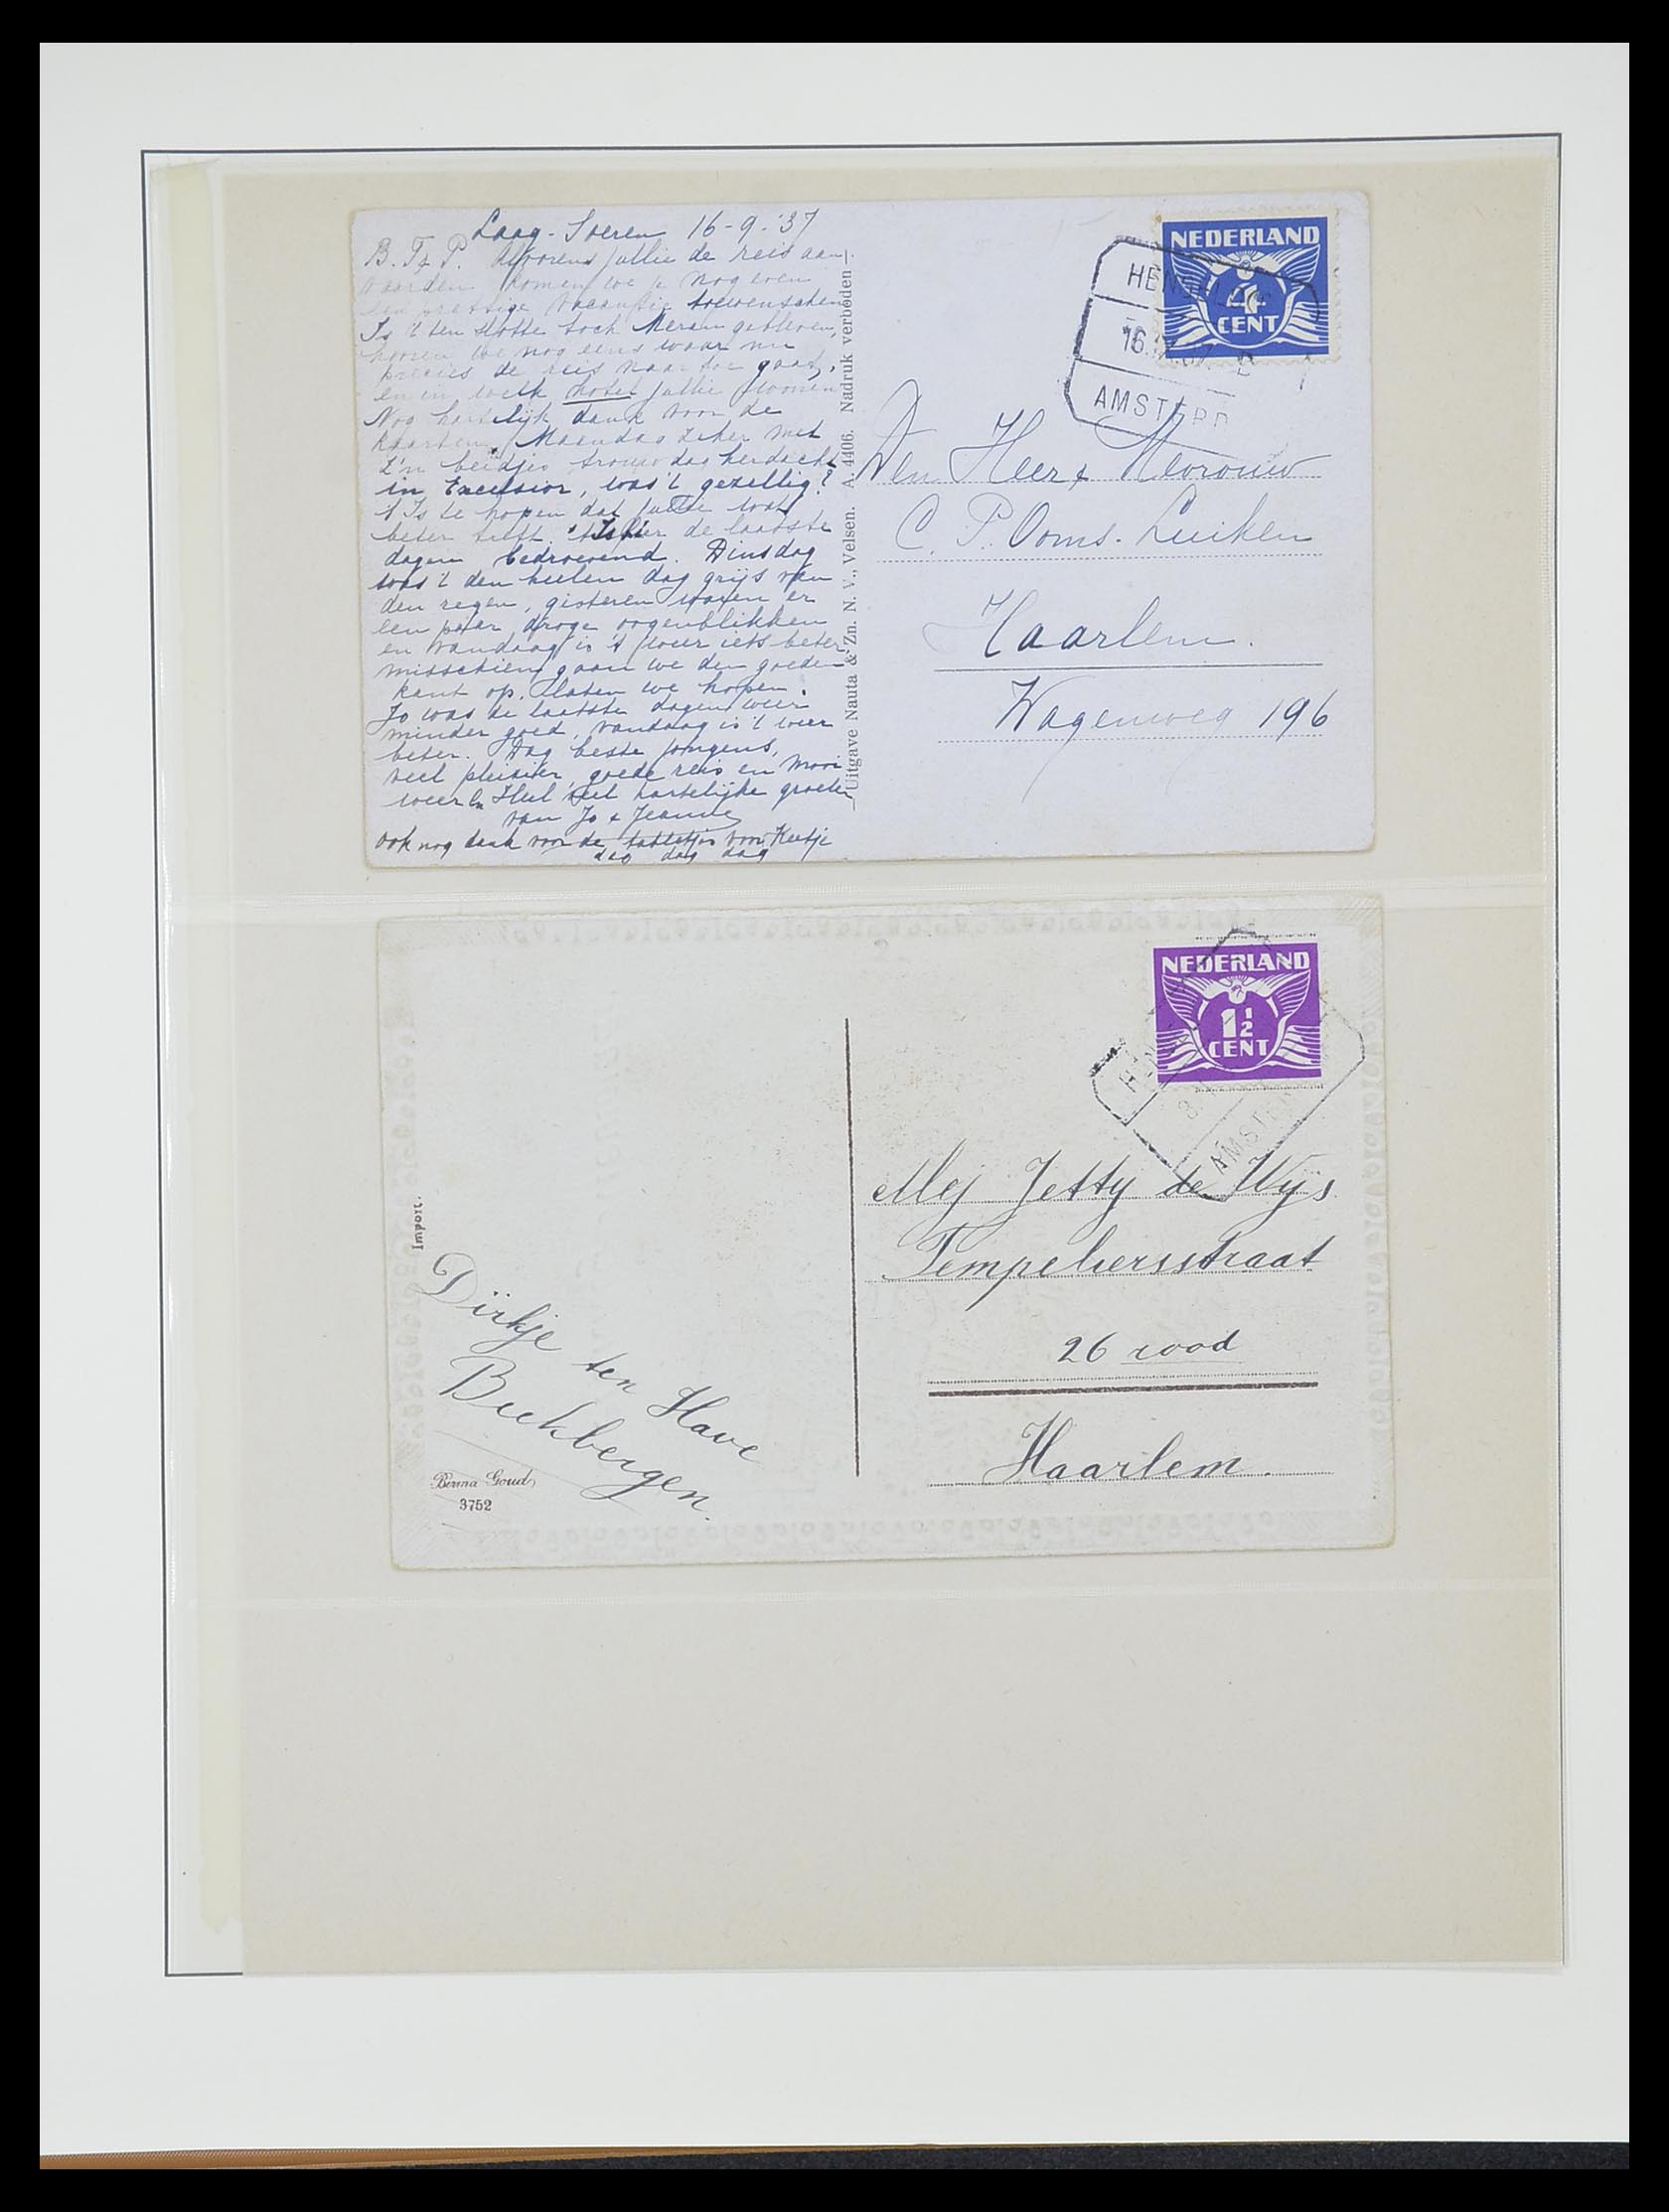 Laag-Soeren 16-9-'37
B. T & P. Alvorens jullie de reis aan-
vaarden komen we je nog even
een prettige vacantie toewenschen
Is 't ten slotte toch Meran gebleven,
hooren we nog eens waar nu
precies de reis naar toe gaat,
en in welk hotel jullie wonen
Nog hartelijk dank voor de
kaarten. Maandag zeker met
z'n beidjes trouwdag herdacht
in Excelsior, was 't gezellig?
't Is te hopen dat jullie wat
beter treft. 't Is hier de laatste
dagen bedroevend. Dinsdag
was 't den heelen dag grijs van
den regen, gisteren waren er
een paar droge oogenblikken
en vandaag is 't weer iets beter
misschien gaan we den goeden
kant op. Laten we hopen.
Jo was de laatste dagen weer
minder goed, vandaag is 't weer
beter. Dag beste jongens,
veel pleizier, goede reis en mooi
weer en Heel veel hartelijke groeten
van Jo & Jeanne
ook nog dank voor de tabletjes voor Keetje
dag dag dag
Uitgave Nauta & Zn. N. V., Velsen. A. 4406. Nadruk verboden
NEDERLAND
4
CENT
AMSTERD
Den Heer & Mevrouw
C. P. Ooms-Luiken
Haarlem.
Wagenweg 196
NEDERLAND
1½
CENT
AMST
Mej Jetty de Wijs
Tempeliersstraat
26 rood
Haarlem.
Import.
Dirkje ten Have
Beekbergen.
Berma Goud
3752